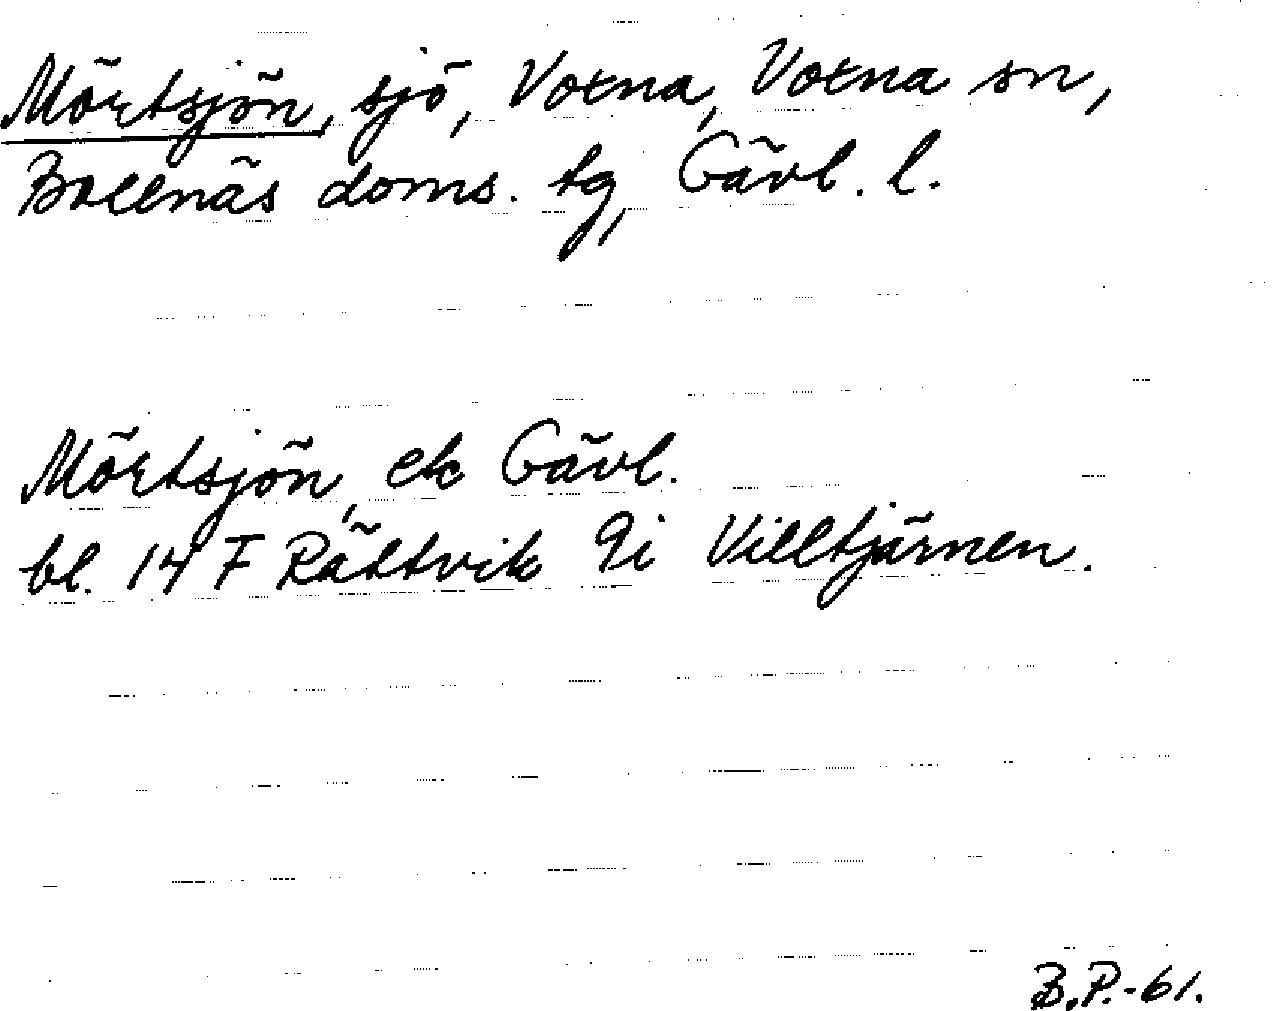 Mörtsjön, sjö, Voxna, Voxna sn,
Bollnäs doms. tg, Gävl. l.
Mörtsjön, ek Gävl.
bl. 14 F Rättvik 9i Villtjärnen.
B.P.-61.